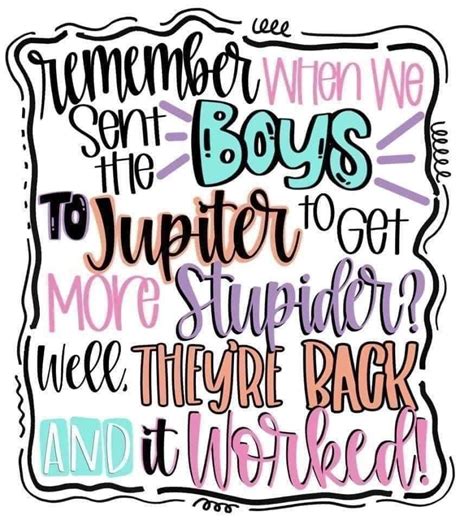 remember when we
sent the Boys
To Jupiter to get
more Stupider?
well, THEY'RE BACK
AND it Worked!